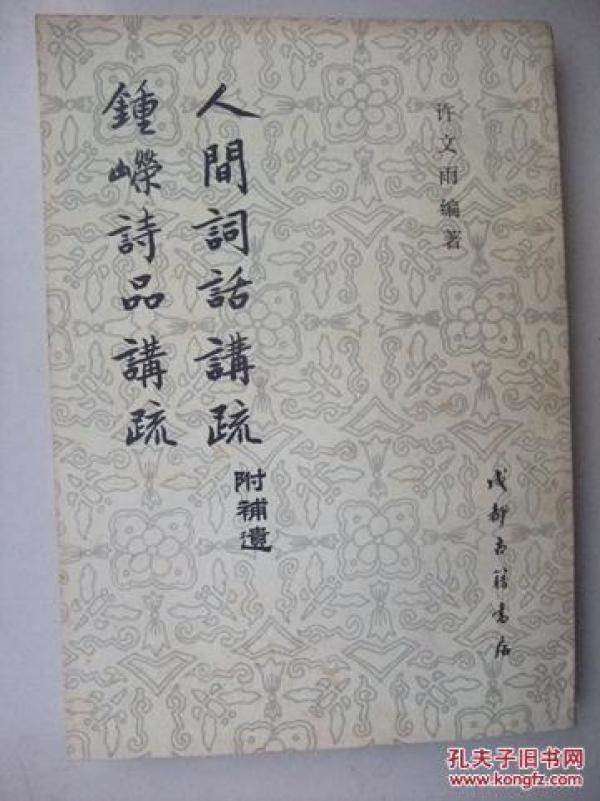 许文雨编著
人間詞話講疏
附補遺
鍾嶸詩品講疏
成都古籍書店
孔夫子旧书网
www.kongfz.com